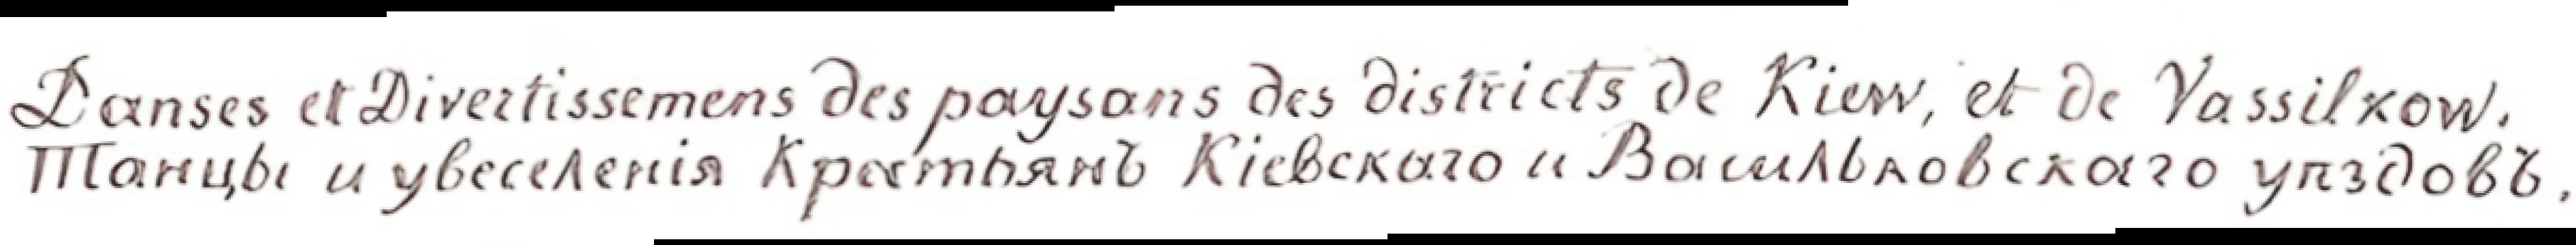 Danses et Divertissemens des paysans des districts de Kiew, et de Vassilkow.
Танцы и увеселенія Крестьянъ Кіевскаго и Васильковскаго уѣздовъ.